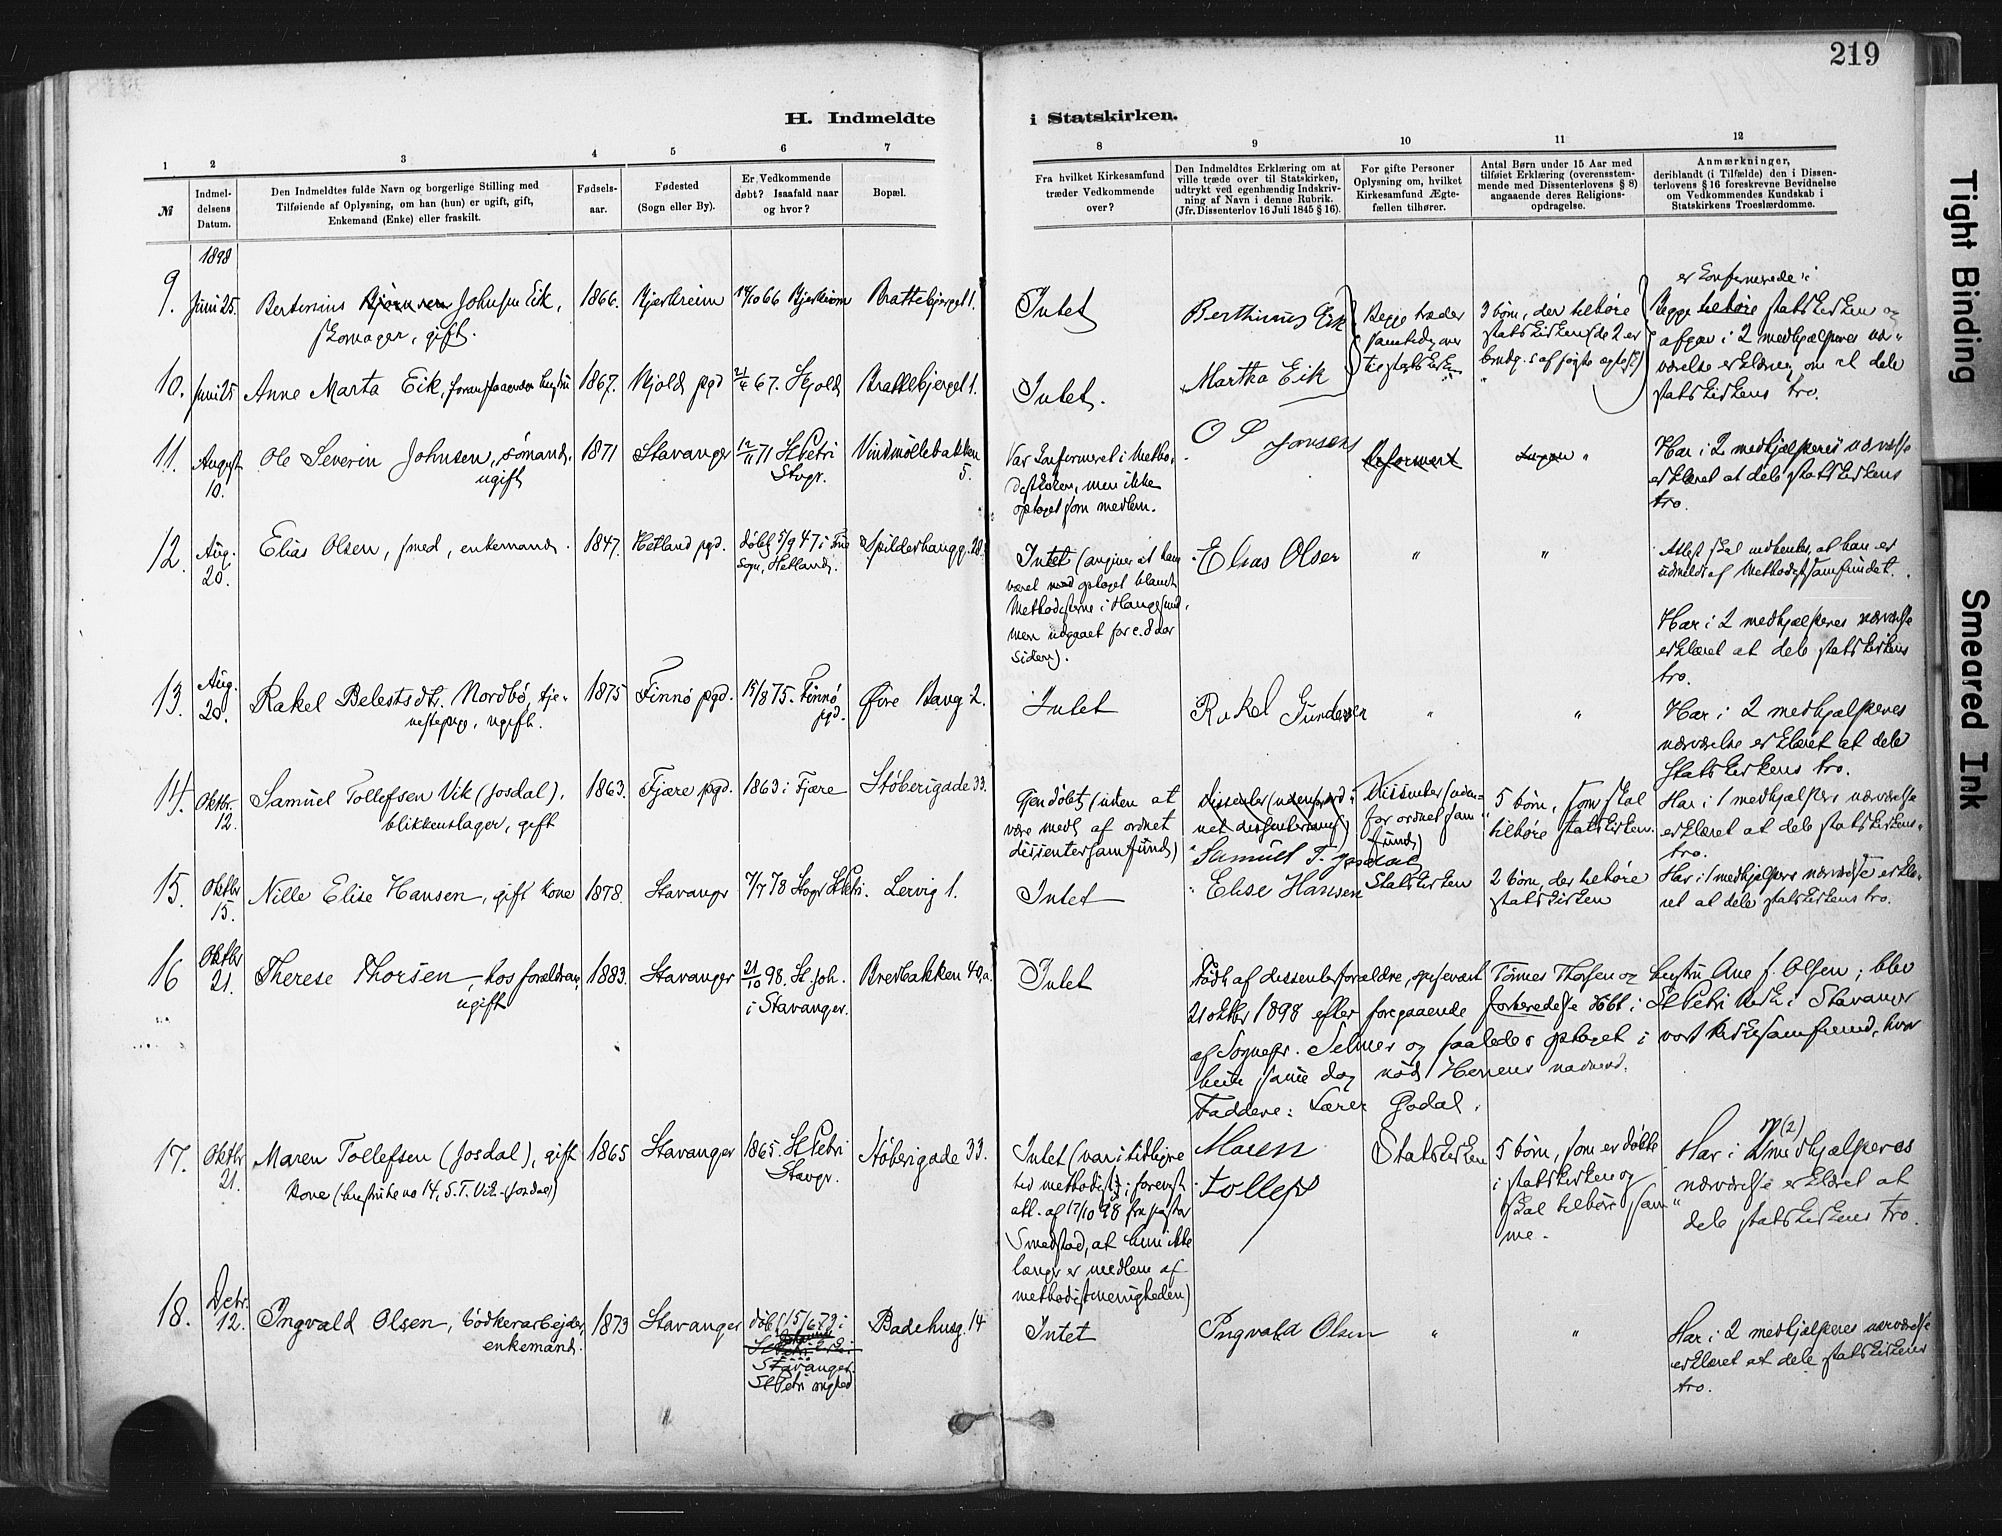 219
H. Indmeldte i Statskirken.
1 2 3 4 5 6 7 8 9 10 11 12
№
Indmel-
delsens
Datum.
Den Indmeldtes fulde Navn og borgerlige Stilling med
Tilføiende af Oplysning, om han (hun) er ugift, gift,
Enkemand (Enke) eller fraskilt.
Fødsels-
aar.
Fødested
(Sogn eller By).
Er Vedkommende
døbt? Isaafald naar
og hvor?
Bopæl.
Fra hvilket Kirkesamfund
træder Vedkommende
over?
Den Indmeldtes Erklæring om at
ville træde over til Statskirken,
udtrykt ved egenhændig Indskriv-
ning af Navn i denne Rubrik.
(Jfr. Dissenterlov 16 Juli 1845 § 16).
For gifte Personer
Oplysning om, hvilket
Kirkesamfund Ægte-
fællen tilhører.
Antal Børn under 15 Aar med
tilføiet Erklæring (overensstem-
mende med Dissenterlovens § 8)
angaaende deres Religions-
opdragelse.
Anmærkninger,
deriblandt (i Tilfælde) den i Dissen-
terlovens § 16 foreskrevne Bevidnelse
om Vedkommendes Kundskab i
Statskirkens Troeslærdomme.
1898
9.
Juni 25.
Bertinius Johnsen Eik,
skomager, gift.
1866.
Bjerkreim
14/10 66 Bjerkreim
Brattebjerget 1.
Intet
Berthinus Eik
Begge træder
samtidig over
til statskirken
3 børn, der tilhøre
statskirken (de 2 er
er konfirmerede i
Begge tilhøre statskirken og
afgav i 2 medhjælperes nær-
værelse erklæring om at dele
statskirkens tro.
10.
Juni 25
Anne Marta Eik, foranstaaendes hustru
1867.
Skjold pgd
67. Skjold
Brattebjerget 1.
Intet.
Martha Eik
11.
August
10.
Ole Severin Johnsen, sømand,
ugift
1871
Stavanger
12/11 71 St Petri
Stvgr.
Vindmøllebakken
5.
Var konfirmeret i Metho-
distkirken, men ikke
optaget som medlem.
O S Jonsen
Reformert
Ingen "
Har i 2 medhjælperes nærværelse
erklæret at dele statskirkens
tro.
12.
Aug.
20.
Elias Olsen, smed, enkemand.
1847.
Hetland pgd.
døbt 5/9 47 i Frue
Sogn, Hetland.
Spilderhaugg. 28.
Intet (angiver at have
været optaget blandt
Methodisterne i Haugesund,
men udgaaet for c. 8 aar
siden).
Elias Olsen
"
"
Attest skal indhentes, at han er
udmeldt af Methodistsamfundet.
Har i 2 medhjælperes nærværelse
erklæret at dele statskirkens
tro.
13.
Aug.
20.
Rakel Belestsdtr. Nordbø, tje-
nestepige, ugift.
1875
Finnø pgd.
15/8 75. Finnø
pgd.
Øvre Bang. 2.
Intet
Rakel Gundersen
"
"
Har i 2 medhjælperes
nærværelse erklæret at dele
statskirkens tro.
14.
Oktbr.
12.
Samuel Tollefsen Vik (Josdal),
blikkenslager, gift
1863.
Fjære pgd.
1863 i Fjære
Støberigade 33.
Gendøbt (uden at
være medl af ordnet
dissentersamfund)
Samuel T. Josdal
Dissenter (uden-
for ordnet sam-
fund)
5 børn, som skal
tilhøre statskirken.
Har i 1 medhjælpers nærværelse
erklæret at dele statskirkens
tro.
15.
Oktbr
15.
Nille Elise Hansen, gift kone
1878.
Stavangr
7/7 78 Stvgr St Petri.
Lervig 1.
Intet
Elise Hansen
Statskirken
2 børn, der tilhøre
statskirken
Har i 1 medhjælpers nærværelse erklæ-
ret at dele statskirkens tro.
16
Oktbr
21.
Therese Thorsen, hos forældrene,
ugift
1883.
Stavanger
21/10 98. St. Joh.
i Stavanger.
Bredbakken 40a.
Intet
Født af dissenterforældre, Tönnes Thorsen og hustru Ane f. Olsen; blev
21 oktbr 1898 efter foregaaende forberedelse døbt i St Petri kirke i Stavanger
af Sognepr. Selmer og saaledes optaget i vort kirkesamfund, hvor
hun samme dag nød Herrens nadverd.
Faddere: Lærer Godal.
17.
Oktbr
21.
Maren Tollefsen (Josdal), gift
kone (hustru til no 14, S. T. Vik-Josdal)
1865
Stavanger
1865. St Petri
Stavgr.
Støberigade 33.
Intet (var i tidligere
tid methodist; forevist
att. af 17/10 98 fra pastor
Smedstad, at hun ikke
længer er medlem af
methodistmenigheden)
Maren
Tollefs
Statskirken
5 børn, som er døbte
i statskirken og
skal tilhøre sam-
me.
Har i 2 medhjælperes
nærværelse erklæret at
dele statskirkens tro.
18.
Dcbr.
12.
Ingvald Olsen, bødkerarbejder,
enkemand.
1873
Stavanger
døbt 15/6 73 i
Stavanger
St Petri mghed
Badehusg. 14
Intet
Ingvald Olsen
"
"
Har i 2 medhjælperes nærværelse
erklæret at dele statskirkens
tro.
Tight Binding
Smeared Ink